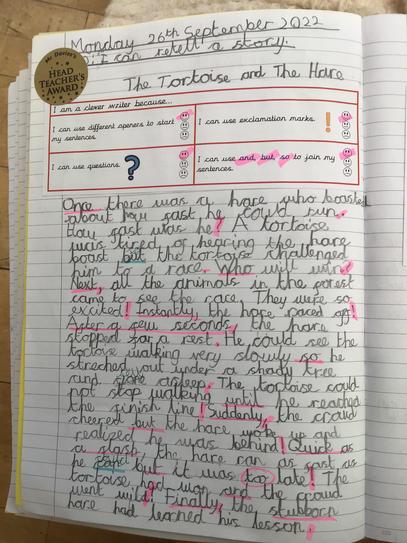 Monday 26th September 2022
I can retell a story.
Mr Davies's
HEAD TEACHER'S AWARD
The Tortoise and The Hare
I am a clever writer because...
I can use different openers to start my sentences.
I can use exclamation marks. !
I can use questions. ?
I can use and, but, so to join my sentences.
Once there was a hare who boasted
about how fast he could run.
How fast was he? A tortoise
was tired of hearing the hare
boast but the tortoise challenged
him to a race. Who will win?
Next, all the animals in the forest
came to see the race. They were so
excited! Instantly, the hare raced off!
After a few seconds, the hare
stopped for a rest. He could see the
tortoise walking very slowly so he
streched out under a shady tree
and asleep. The tortoise could
not stop walking until he reached
the finish line! Suddenly, the craud
cheered but the hare woke up and
realized he was behind! Quick as
a flash, the hare ran as fast as
he could but it was too late! The
tortoise had won and the craud
went wild! Finally, the stubborn
hare had learned his lesson.